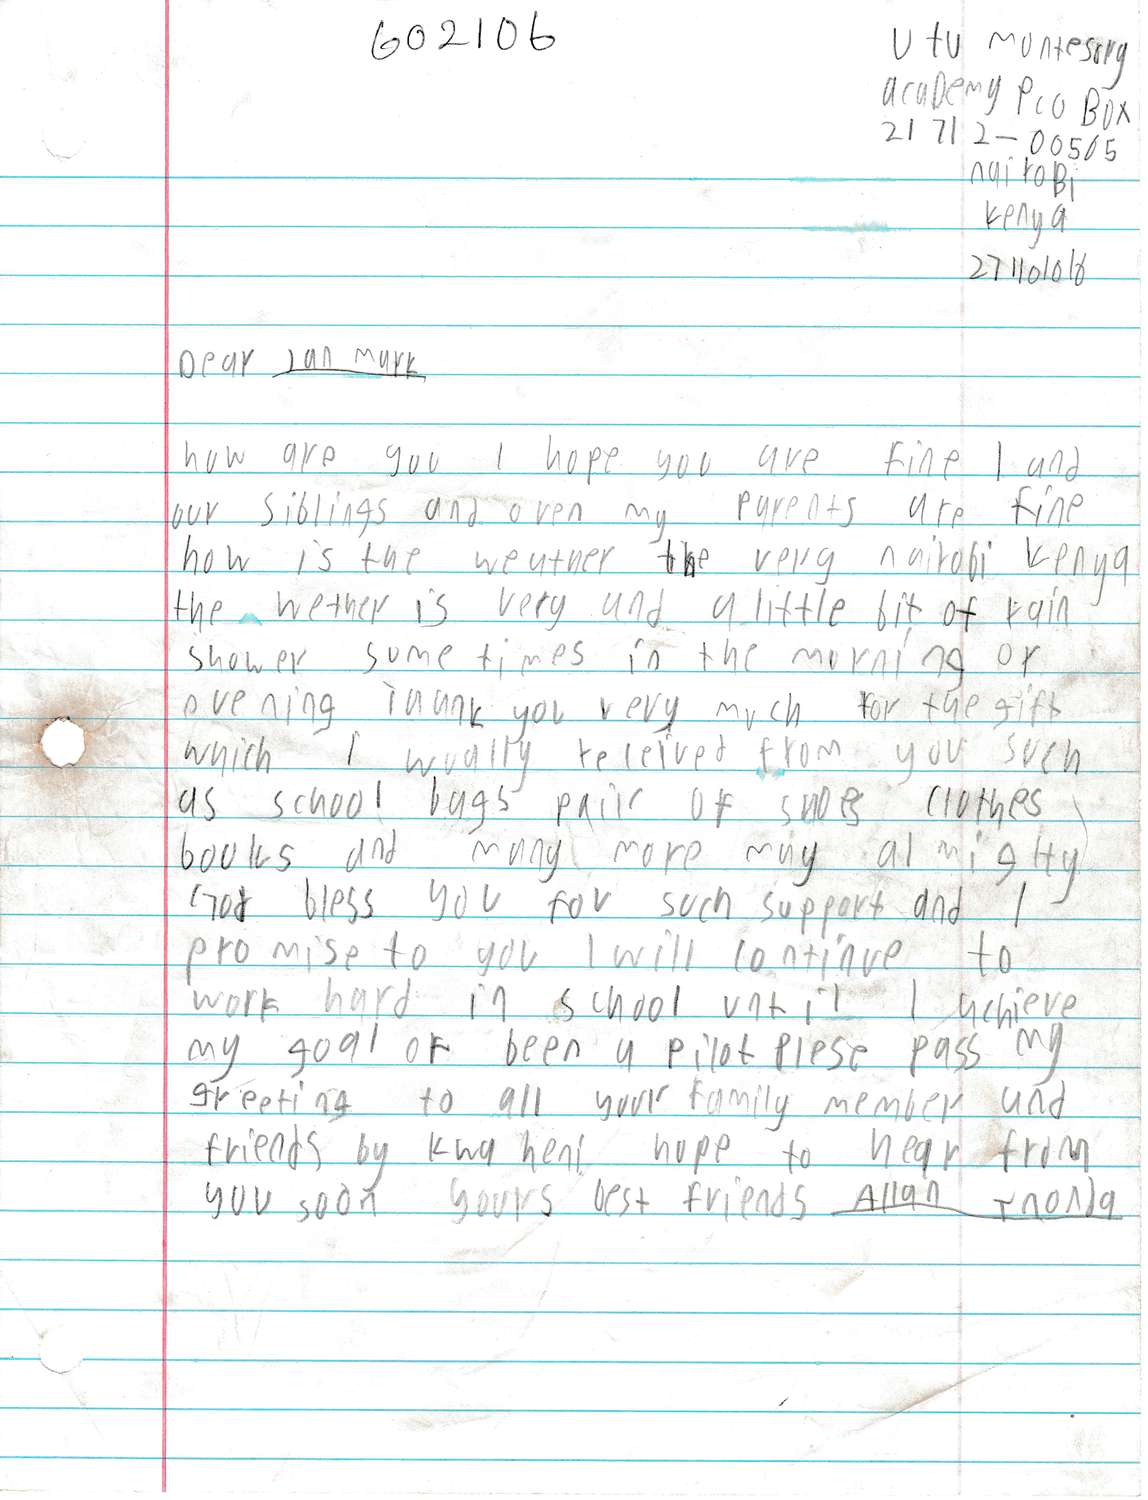 602106
Utu muntesory
acaDemy Pco Box
21712-00505
nairoBi
kenya
Dear Ian murk
how are you I hope you are fine I and
our siblings and oven my parents are fine
how is the weuther the very nairobi kenya
the wether is very and a little bit of rain
shower sometimes in the morning or
ovening Thank you very much for the gift
which I wually received from you such
as school bags pair of shoes clothes
books and many more may almighty
God bless you for such support and I
promise to you I will continue to
work hard in school until I achieve
my goal of been a pilot Plese pass my
greeting to all your family member and
friends by kwa heri hope to hear from
you soon yours best friends Allan